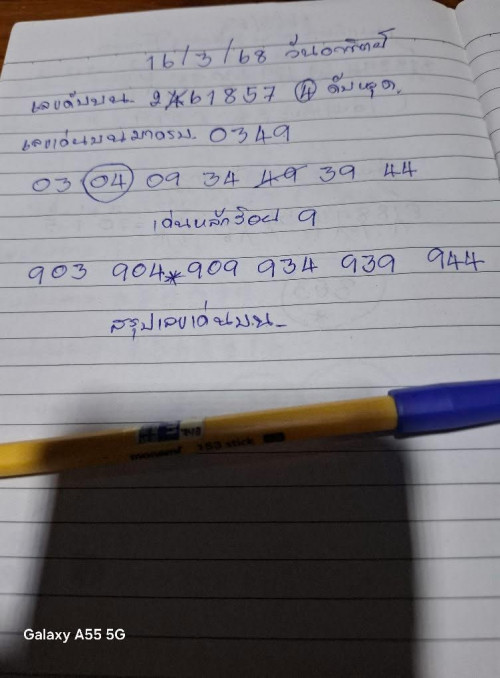 16/3/68 วันอาทิตย์
เลขดับบน 2 61857 4 ดับหลุด,
เลขเด่นบนมาตรง. 0349
03 04 09 34 49 39 44
เด่นหลักร้อย 9
903 904*909 934 939 944
สรุปเลขเด่นบน_
153 stick
Galaxy A55 5G